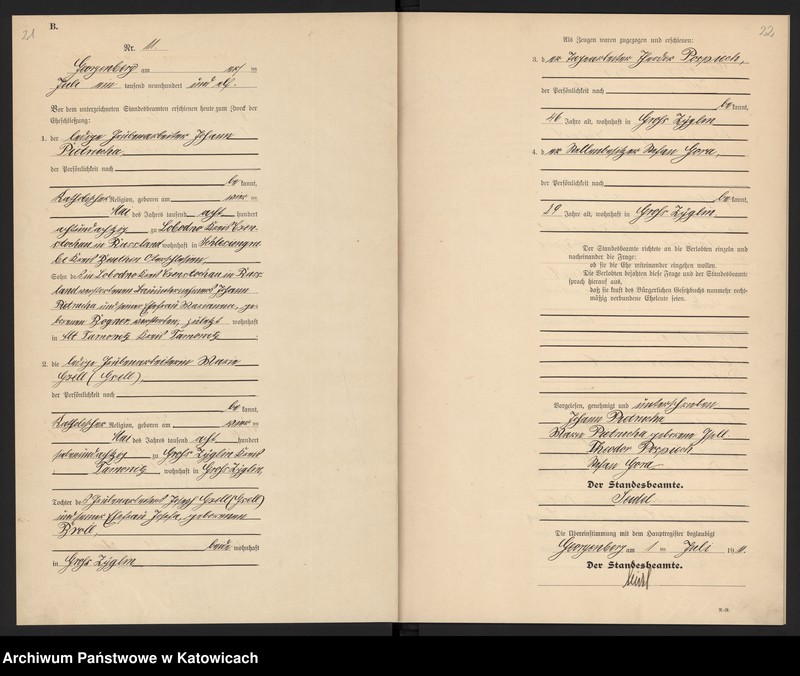 21
B.
Nr. 11.
Georgenberg am
Juli ein tausend neunhundert und elf.
Vor dem unterzeichneten Standesbeamten erschienen heute zum Zweck der
Eheschließung:
1. der ledige Grubenarbeiter Johann
Pietrucha
der Persönlichkeit nach
be kannt,
Katholischer Religion, geboren am
Mai des Jahres tausend acht hundert
achtundachtzig zu Lobodno Kreis Czen-
stochau in Russland wohnhaft in
Kreis Beuthen Oberschlesien
Sohn des in Lobodno Kreis Czenstochau in Russ-
land verstorbenen Johann
Pietrucha und seiner Ehefrau Marianna, ge-
borenen Bogner, verstorben, zuletzt wohnhaft
in Alt Tarnowitz Kreis Tarnowitz
2. die ledige Grubenarbeiterin Marie
Gzell (Gsell)
der Persönlichkeit nach
be kannt,
Katholischer Religion, geboren am
Mai des Jahres tausend acht hundert
zu Groß Zyglin Kreis
Tarnowitz, wohnhaft in Groß Zyglin,
Tochter des Grubenarbeiters Josef Gzell (Gsell)
und seiner Ehefrau Josefa, geborenen
Kroll,
beide wohnhaft
in Groß Zyglin
22
Als Zeugen waren zugezogen und erschienen:
3. der Theodor Pospiech,
der Persönlichkeit nach
be kannt,
46 Jahre alt, wohnhaft in Groß Zyglin
4. der Stellenbesitzer Stefan Gora,
der Persönlichkeit nach
be kannt,
Jahre alt, wohnhaft in Groß Zyglin
Der Standesbeamte richtete an die Verlobten einzeln und
nacheinander die Frage:
ob sie die Ehe miteinander eingehen wollen.
Die Verlobten bejahten diese Frage und der Standesbeamte
sprach hierauf aus,
daß sie kraft des Bürgerlichen Gesetzbuchs nunmehr recht-
mäßig verbundene Eheleute seien.
Vorgelesen, genehmigt und unterschrieben
Johann Pietrucha
Marie Pietrucha geborene
Theodor Pospiech
Stefan Gora
Der Standesbeamte.
Seidel
Die Übereinstimmung mit dem Hauptregister beglaubigt
Georgenberg am 1 ten Juli 19 11.
Der Standesbeamte.
Seidel
Archiwum Państwowe w Katowicach